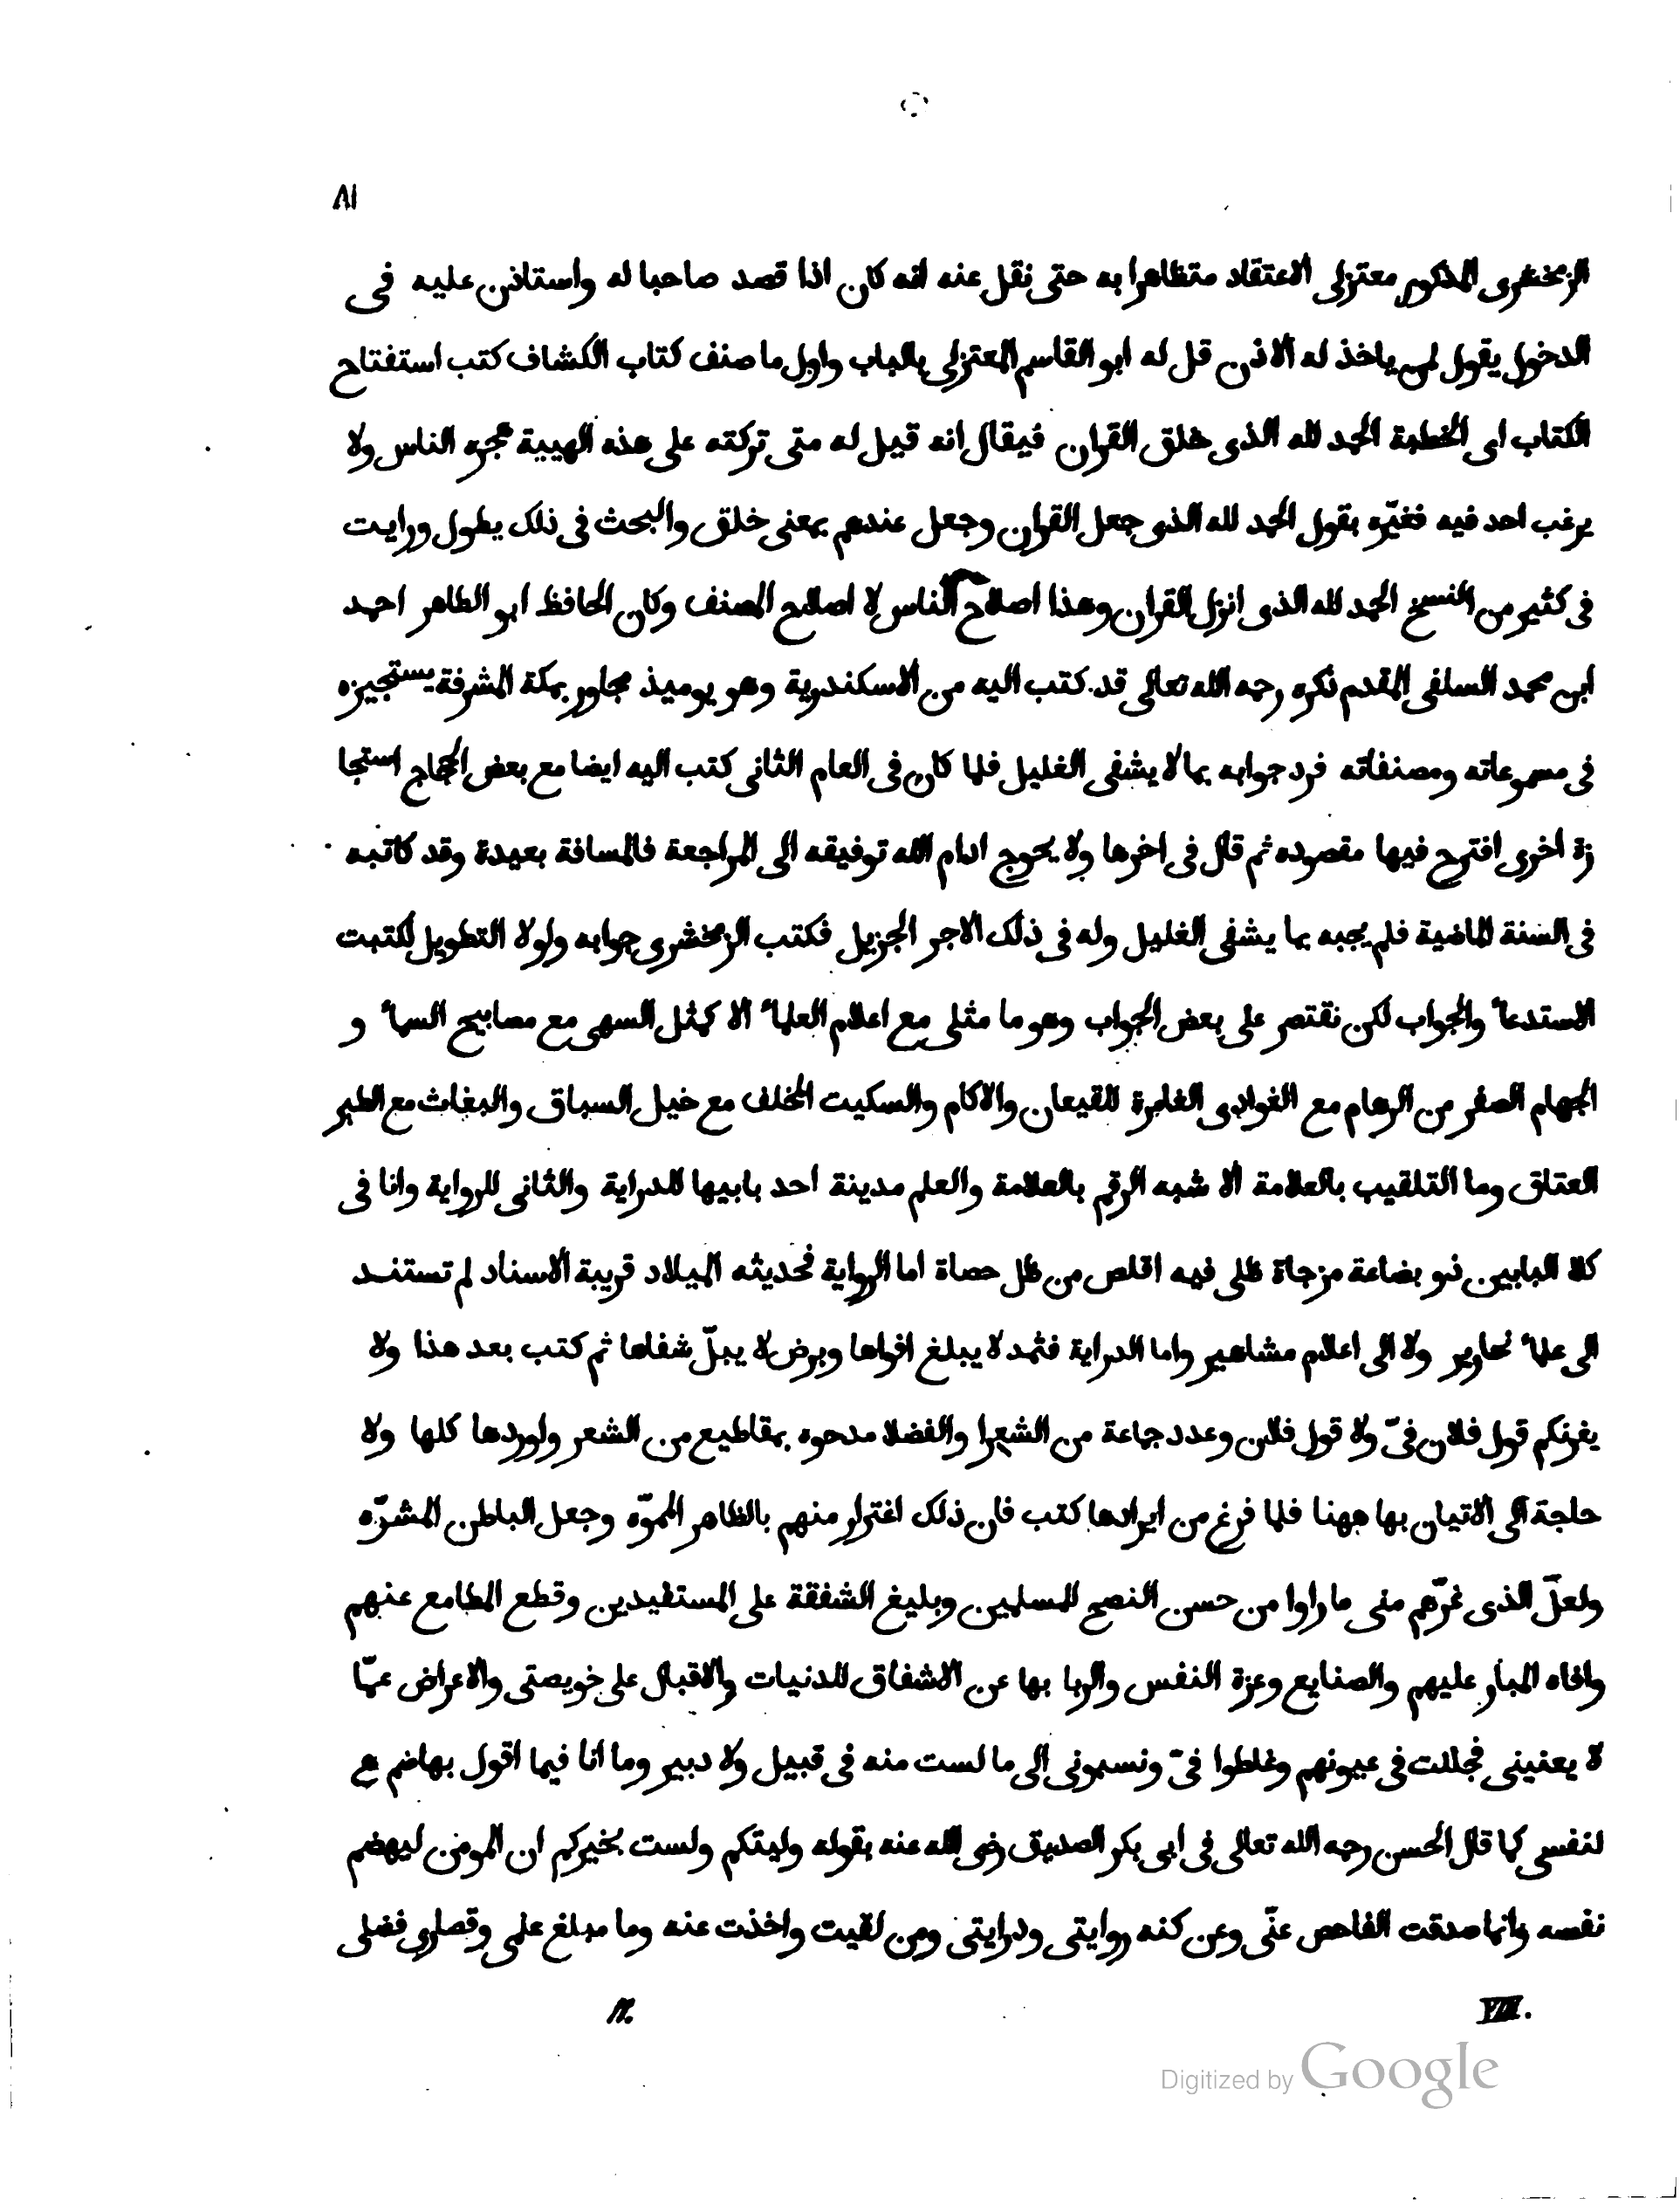 ٨١
الزمخشرى المذكور معتزلى الاعتقاد متظاهرا به حتى نقل عنه انه كان اذا قصد صاحبا له واستاذن عليه فى
الدخول يقول لمن ياخذ له الاذن قل له ابو القاسم المعتزلى بالباب واول ما صنف كتاب الكشاف كتب استفتاح
الكتاب اى الخطبة الحمد لله الذى خلق القران فيقال انه قيل له متى تركته على هذه الهيية هجره الناس ولا
يرغب احد فيه فغيّره بقول الحمد لله الذى جعل القران وجعل عندهم بمعنى خلق والبحث فى ذلك يطول ورايت
فى كثير من النسخ الحمد لله الذى انزل القران وهذا اصلاح الناس لا اصلاح المصنف وكان الحافظ ابو الطاهر احمد
ابن محمد السلفى المقدم ذكره رحمه الله تعالى قد كتب اليه من الاسكندرية وهو يوميذ مجاور بمكة المشرفة يستجيزه
فى مسموعاته ومصنفاته فرد جوابه بما لا يشفى الغليل فلما كان فى العام الثانى كتب اليه ايضا مع بعض الحجاج استجا
زة اخرى اقترح فيها مقصوده ثم قال فى اخرها ولا يحوج ادام الله توفيقه الى المراجعة فالمسافة بعيدة وقد كاتبه
فى السنة الماضية فلم يجبه بما يشفى الغليل وله فى ذلك الاجر الجزيل فكتب الزمخشرى جوابه ولولا التطويل لكتبت
الاستدعاء والجواب لكن نقتصر على بعض الجواب وهو ما مثلى مع اعلام العلماء الا كمثل السهى مع مصابيح السماء و
الجهام الصفر من الرهام مع الغوادى الغامرة للقيعان والاكام والسكيت المخلف مع خيل السباق والبغاث مع الطير
العتاق وما التلقيب بالعلامة الا شبه الرقم بالعلامة والعلم مدينة احد بابيها للدراية والثانى للرواية وانا فى
كلا البابين ذو بضاعة مزجاة ظلى فيه اقلص من ظل حصاة اما الرواية فحديثه الميلاد قريبة الاسناد لم تستنــد
الى علماء نحارير ولا الى اعلام مشاهير واما الدراية فثمد لا يبلغ افواها وبرض لا يبلّ شفاها ثم كتب بعد هذا ولا
يغرنكم قول فلان فىّ ولا قول فلان وعدد جماعة من الشعرا والفضلا مدحوه بمقاطيع من الشعر واوردها كلها ولا
حاجة الى الاتيان بها ههنا فلما فرغ من ايرادها كتب فان ذلك اغترار منهم بالظاهر المموّه وجعل الباطن المشوّه
ولعلّ الذى غرّهم منى ما راوا من حسن النصح للمسلمين وبليغ الشفقة على المستفيدين وقطع المطامع عنهم
وافاه المبار عليهم والصنايع وعزة النفس والربا بها عن الاشفاق للدنيات والاقبال على خويصتى والاعراض عمّا
لا يعنينى فجللت فى عيونهم وغلطوا فىّ ونسبونى الى ما لست منه فى قبيل ولا دبير وما انا فيما اقول بهاضم ع
لنفسى كما قال الحسن رحمه الله تعالى فى ابى بكر الصديق رضى الله عنه بقوله وليتكم ولست بخيركم ان المومن ليهضم
نفسه وانما صدقت الفاحص عنّى وعن كنه روايتى ودرايتى ومن لقيت واخذت عنه وما مبلغ علمى وقصارى فضلى
VIII. 11.
Digitized by Google